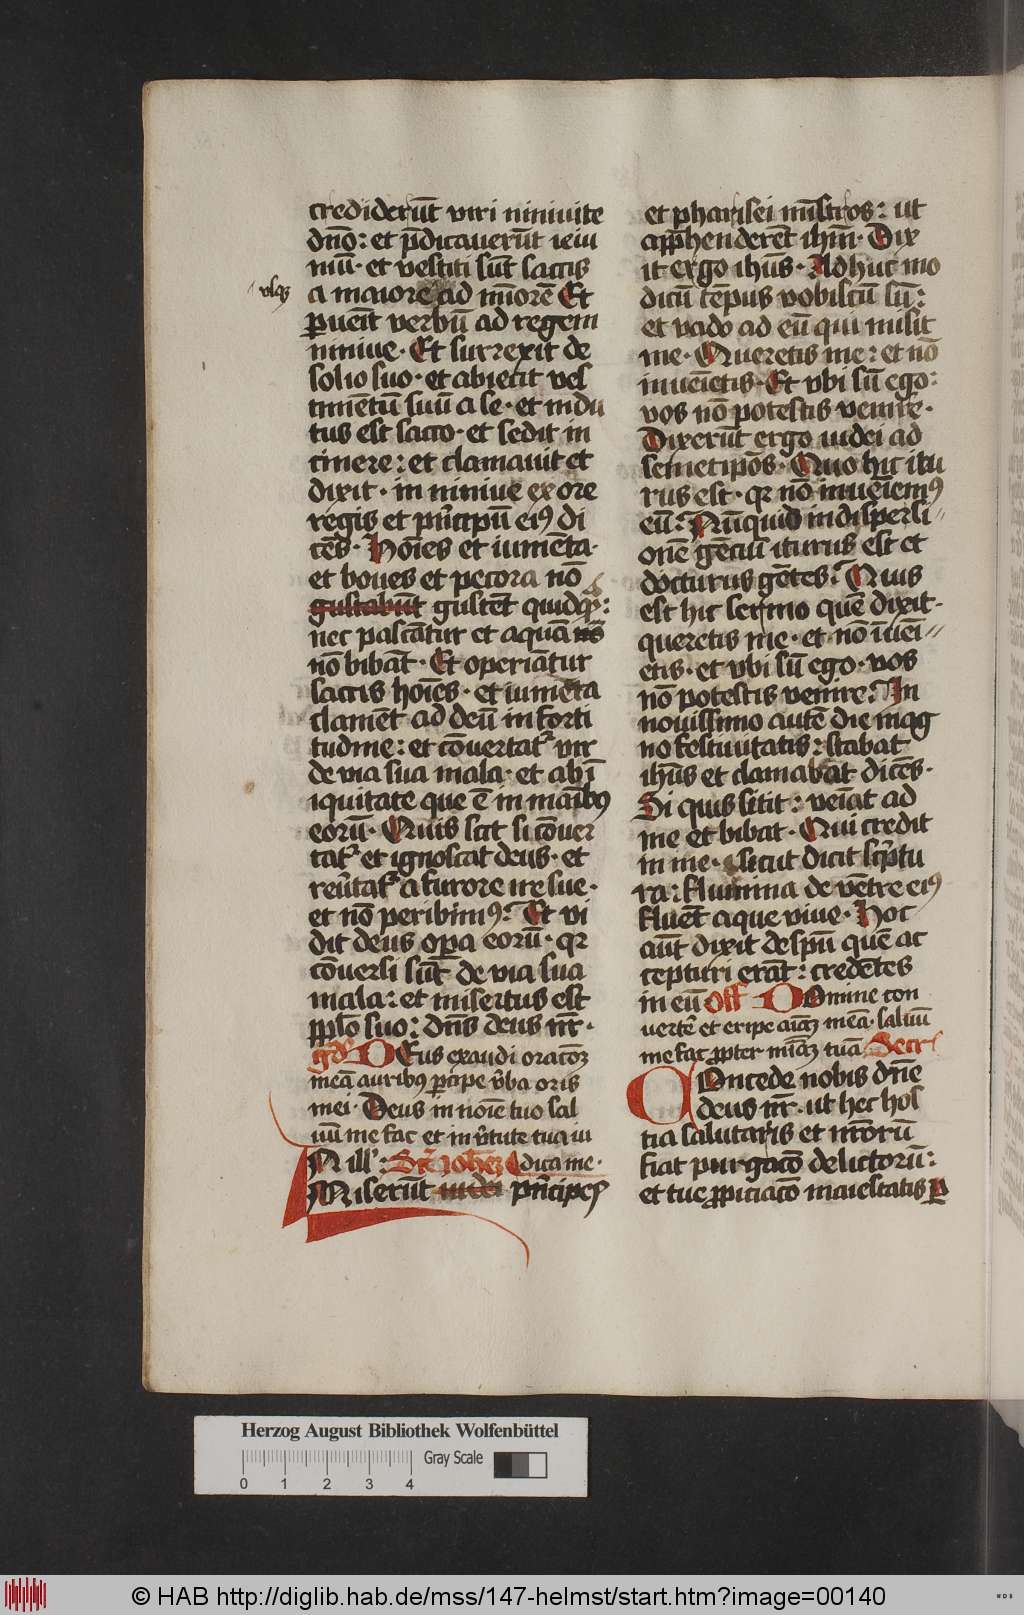 crediderūt viri niniuite
dn̄o: et p̄dicauerūt ieiu
niū· et vestiti sūt saccis
vsq3
a maiore ad mīorē Et
ꝑueīt verbū ad regem
niniue· Et surrexit de
solio suo· et abiecit ves
timētū suū a se· et indu
tus est sacco· et sedit in
cinere: et clamauit et
dixit· in niniue ex ore
regis et prīcipū eiꝰ di
cēs· Hoīes et iumēta·
et boues et pecora nō
gustabūt gustēt quidqᷓ:
nec pascātur et aquā
nō bibāt· Et operiātur
saccis hoīes· et iumēta
clament ad deū in forti
tudine: et cōuertatᷣ vir
de via sua mala· et abī
iquitate que ē in maībꝰ
eorū· Quis scit si cōuer
tatᷣ et ignoscat deus· et
reūtatᷣ a furore ire sue·
et nō peribimꝰ: Et vi
dit deus opa eorū· qꝛ
cōuersi sūt de via sua
mala: et misertus est
pplo suo: dn̄s deus nr̄·
gd̄ DEus exaudi oracōꝫ
meā auribus ꝑcipe v̄ba oris
mei· Deus in noīe tuo sal
uū me fac et in v̄tute tua iu
Nill': Scᷣ Johēꝫ dica me·
Miserūt iudei prīcipes
et pharisei mīstros: ut
app̄henderēt ihm̄· Dix
it ergo ihūs· Adhuc mo
dicū tēpus vobiscū sū:
et vado ad eū qui misit
me· Queretis me: et nō
inueīetis· Et vbi sū ego:
vos nō potestis venire·
Dixerūt ergo iudei ad
semetipōs· Quo hic itu
rus est· qꝛ nō inueīemꝰ
eū: Nūquid in dispersi
onē gēciū iturus est et
docturus gētes: Quis
est hic sermo quē dixit·
queretis me· et nō īueī
etis· et vbi sū ego· vos
nō potestis venire: In
nouissimo autē die mag
no festiuitatis: stabat
ihūs et clamabāt dicēs·
Si quis sitit: veīat ad
me et bibat· Qui credit
in me· sicut dicit scptu
ra: flumina de vētre eiꝰ
fluēt aque viue· Hoc
aūt dixit de spū quē ac
cepturi erāt: credētes
in eū Off DOmine con
uertē et eripe aīaꝫ meā· saluū
me fac ꝓpter mīaꝫ tuā Secrᷣ
COncede nobis dn̄e
deus nr̄· ut hec hos
tia salutaris et nrōrū
fiat purgacō delictorū:
et tue ꝓpiciacō maiestatis ꝑ
Herzog August Bibliothek Wolfenbüttel
Gray Scale
0 1 2 3 4
© HAB http://diglib.hab.de/mss/147-helmst/start.htm?image=00140